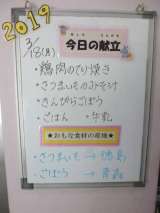 2019
3/18(月)
きょう こんだて
今日の献立
・鶏肉のてり焼き
・さつまいものみそ汁
・きんぴらごぼう
・ごはん ・牛乳
★おもな食材の産地★
・さつまいも→徳島
・ごぼう→青森